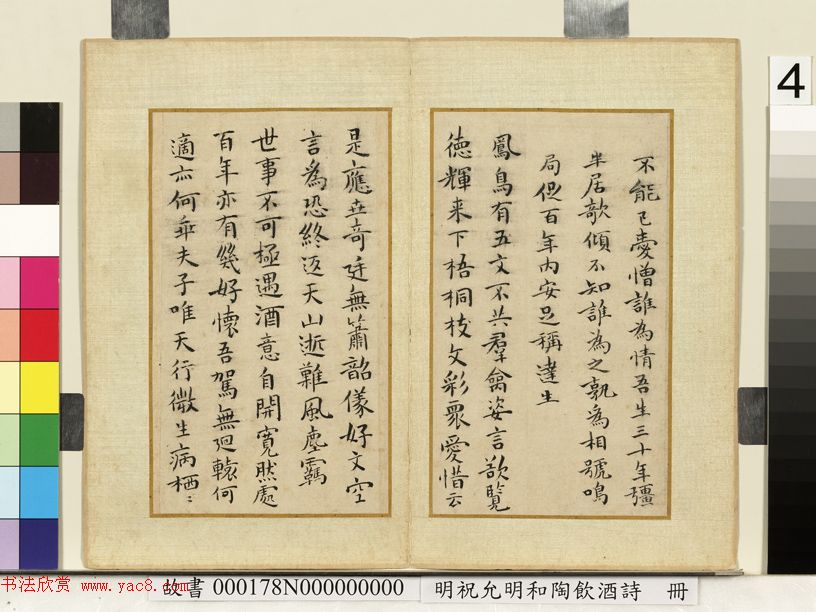 4
不能已憂憎誰為情吾生三十年彊
半居欹傾不知誰為之孰為相號鳴
局促百年内安足稱達生
鳳鳥有五文不共羣禽姿言欲覽
徳輝来下梧桐枝文彩眾愛惜云
是應世奇廷無簫韶儀好文空
言為恐終返天山逝難風塵羈
世事不可極遇酒意自開寛然處
百年亦有幾好懷吾駕無迴轅何
適亦何乖夫子唯天行微生病栖〻
书法欣赏 www.yac8.com
故書 000178N000000000
明祝允明和陶飲酒詩 冊